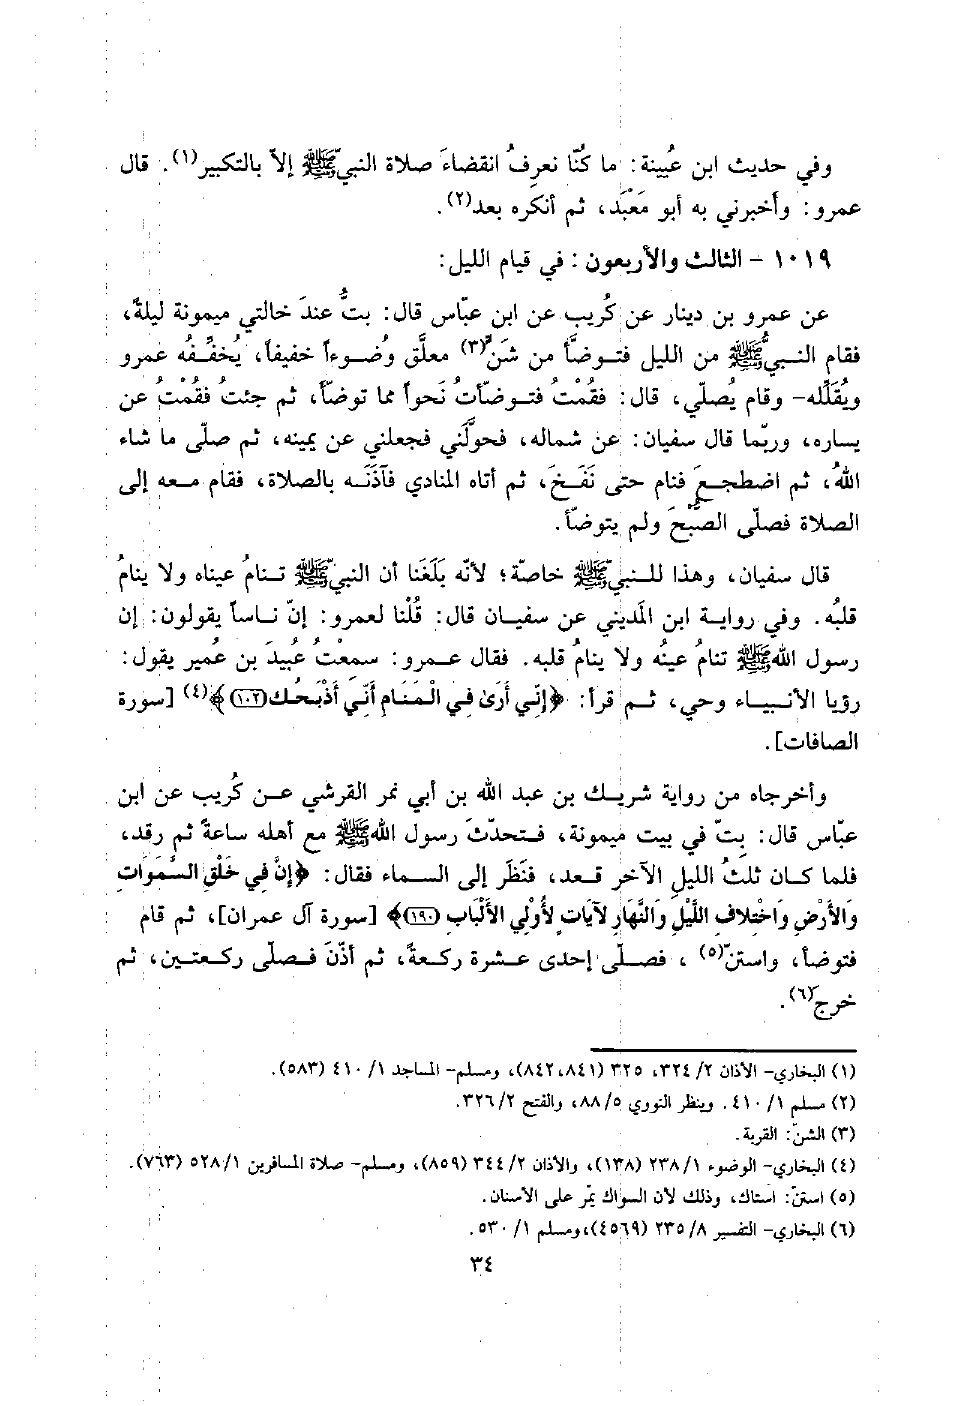 وفي حديث ابن عُيينة: ما كنّا نعرفُ انقضاءَ صلاة النبيّ ﷺ إلاّ بالتكبير(١). قال
عمرو: وأخبرني به أبو مَعْبَد، ثم أنكره بعد(٢).
١٠١٩ – الثالث والأربعون: في قيام الليل:
عن عمرو بن دينار عن كُريب عن ابن عبّاس قال: بتُّ عندَ خالتي ميمونة ليلةً،
فقام النبيُّ ﷺ من الليل فتوضّأ من شَنّ(٣) معلَّق وُضوءاً خفيفاً، يُخفِّفُه عمرو
ويُقَلِّله- وقام يُصلّي، قال: فقُمْتُ فتوضّأتُ نَحواً مما توضّأ، ثم جئتُ فقُمْتُ عن
يساره، وربّما قال سفيان: عن شماله، فحوّلَني فجعلني عن يمينه، ثم صلّى ما شاء
اللهُ، ثم اضطجعَ فنام حتى نَفَخَ، ثم أتاه المنادي فآذَنَه بالصلاة، فقام معه إلى
الصلاة فصلّى الصُّبْحَ ولم يتوضّأ.
قال سفيان، وهذا للنبيّ ﷺ خاصّة؛ لأنّه بَلَغَنا أن النبيّ ﷺ تنامُ عيناه ولا ينامُ
قلبُه. وفي رواية ابن المَديني عن سفيان قال: قُلْنا لعمرو: إنّ ناساً يقولون: إن
رسول الله ﷺ تنامُ عينُه ولا ينامُ قلبه. فقال عمرو: سمعْتُ عُبيدَ بن عُمير يقول:
رؤيا الأنبياء وحي، ثم قرأ: ﴿إِنِّي أَرَىٰ فِي الْمَنَامِ أَنِّي أَذْبَحُكَ(١٠٢)﴾(٤) [سورة
الصافات].
وأخرجاه من رواية شريك بن عبد الله بن أبي نمر القرشي عن كُريب عن ابن
عبّاس قال: بِتّ في بيت ميمونة، فتحدّثَ رسول الله ﷺ مع أهله ساعةً ثم رقد،
فلما كان ثلثُ الليلِ الآخر قعد، فنَظَر إلى السماء فقال: ﴿إِنَّ فِي خَلْقِ السَّمَوَاتِ
وَالأَرْضِ وَاخْتِلافِ اللَّيْلِ وَالنَّهَارِ لآيَاتٍ لأُولِي الأَلْبَابِ (١٩٠)﴾ [سورة آل عمران]، ثم قام
فتوضأ، واستنّ(٥)، فصلّى إحدى عشرة ركعةً، ثم أذّنَ فصلى ركعتين، ثم
خرج(٦).
(١) البخاري- الأذان ٢/ ٣٢٤، ٣٢٥ (٨٤١، ٨٤٢)، ومسلم- المساجد ١/ ٤١٠ (٥٨٣).
(٢) مسلم ١/ ٤١٠. وينظر النووي ٥/ ٨٨، والفتح ٢/ ٣٢٦.
(٣) الشنّ: القربة.
(٤) البخاري- الوضوء ١/ ٢٣٨ (١٣٨)، والأذان ٢/ ٣٤٤ (٨٥٩)، ومسلم- صلاة المسافرين ١/ ٥٢٨ (٧٦٣).
(٥) استنّ: استاك، وذلك لأن السواك يمّر على الأسنان.
(٦) البخاري- التفسير ٨/ ٢٣٥ (٤٥٦٩)، ومسلم ١/ ٥٣٠.
٣٤